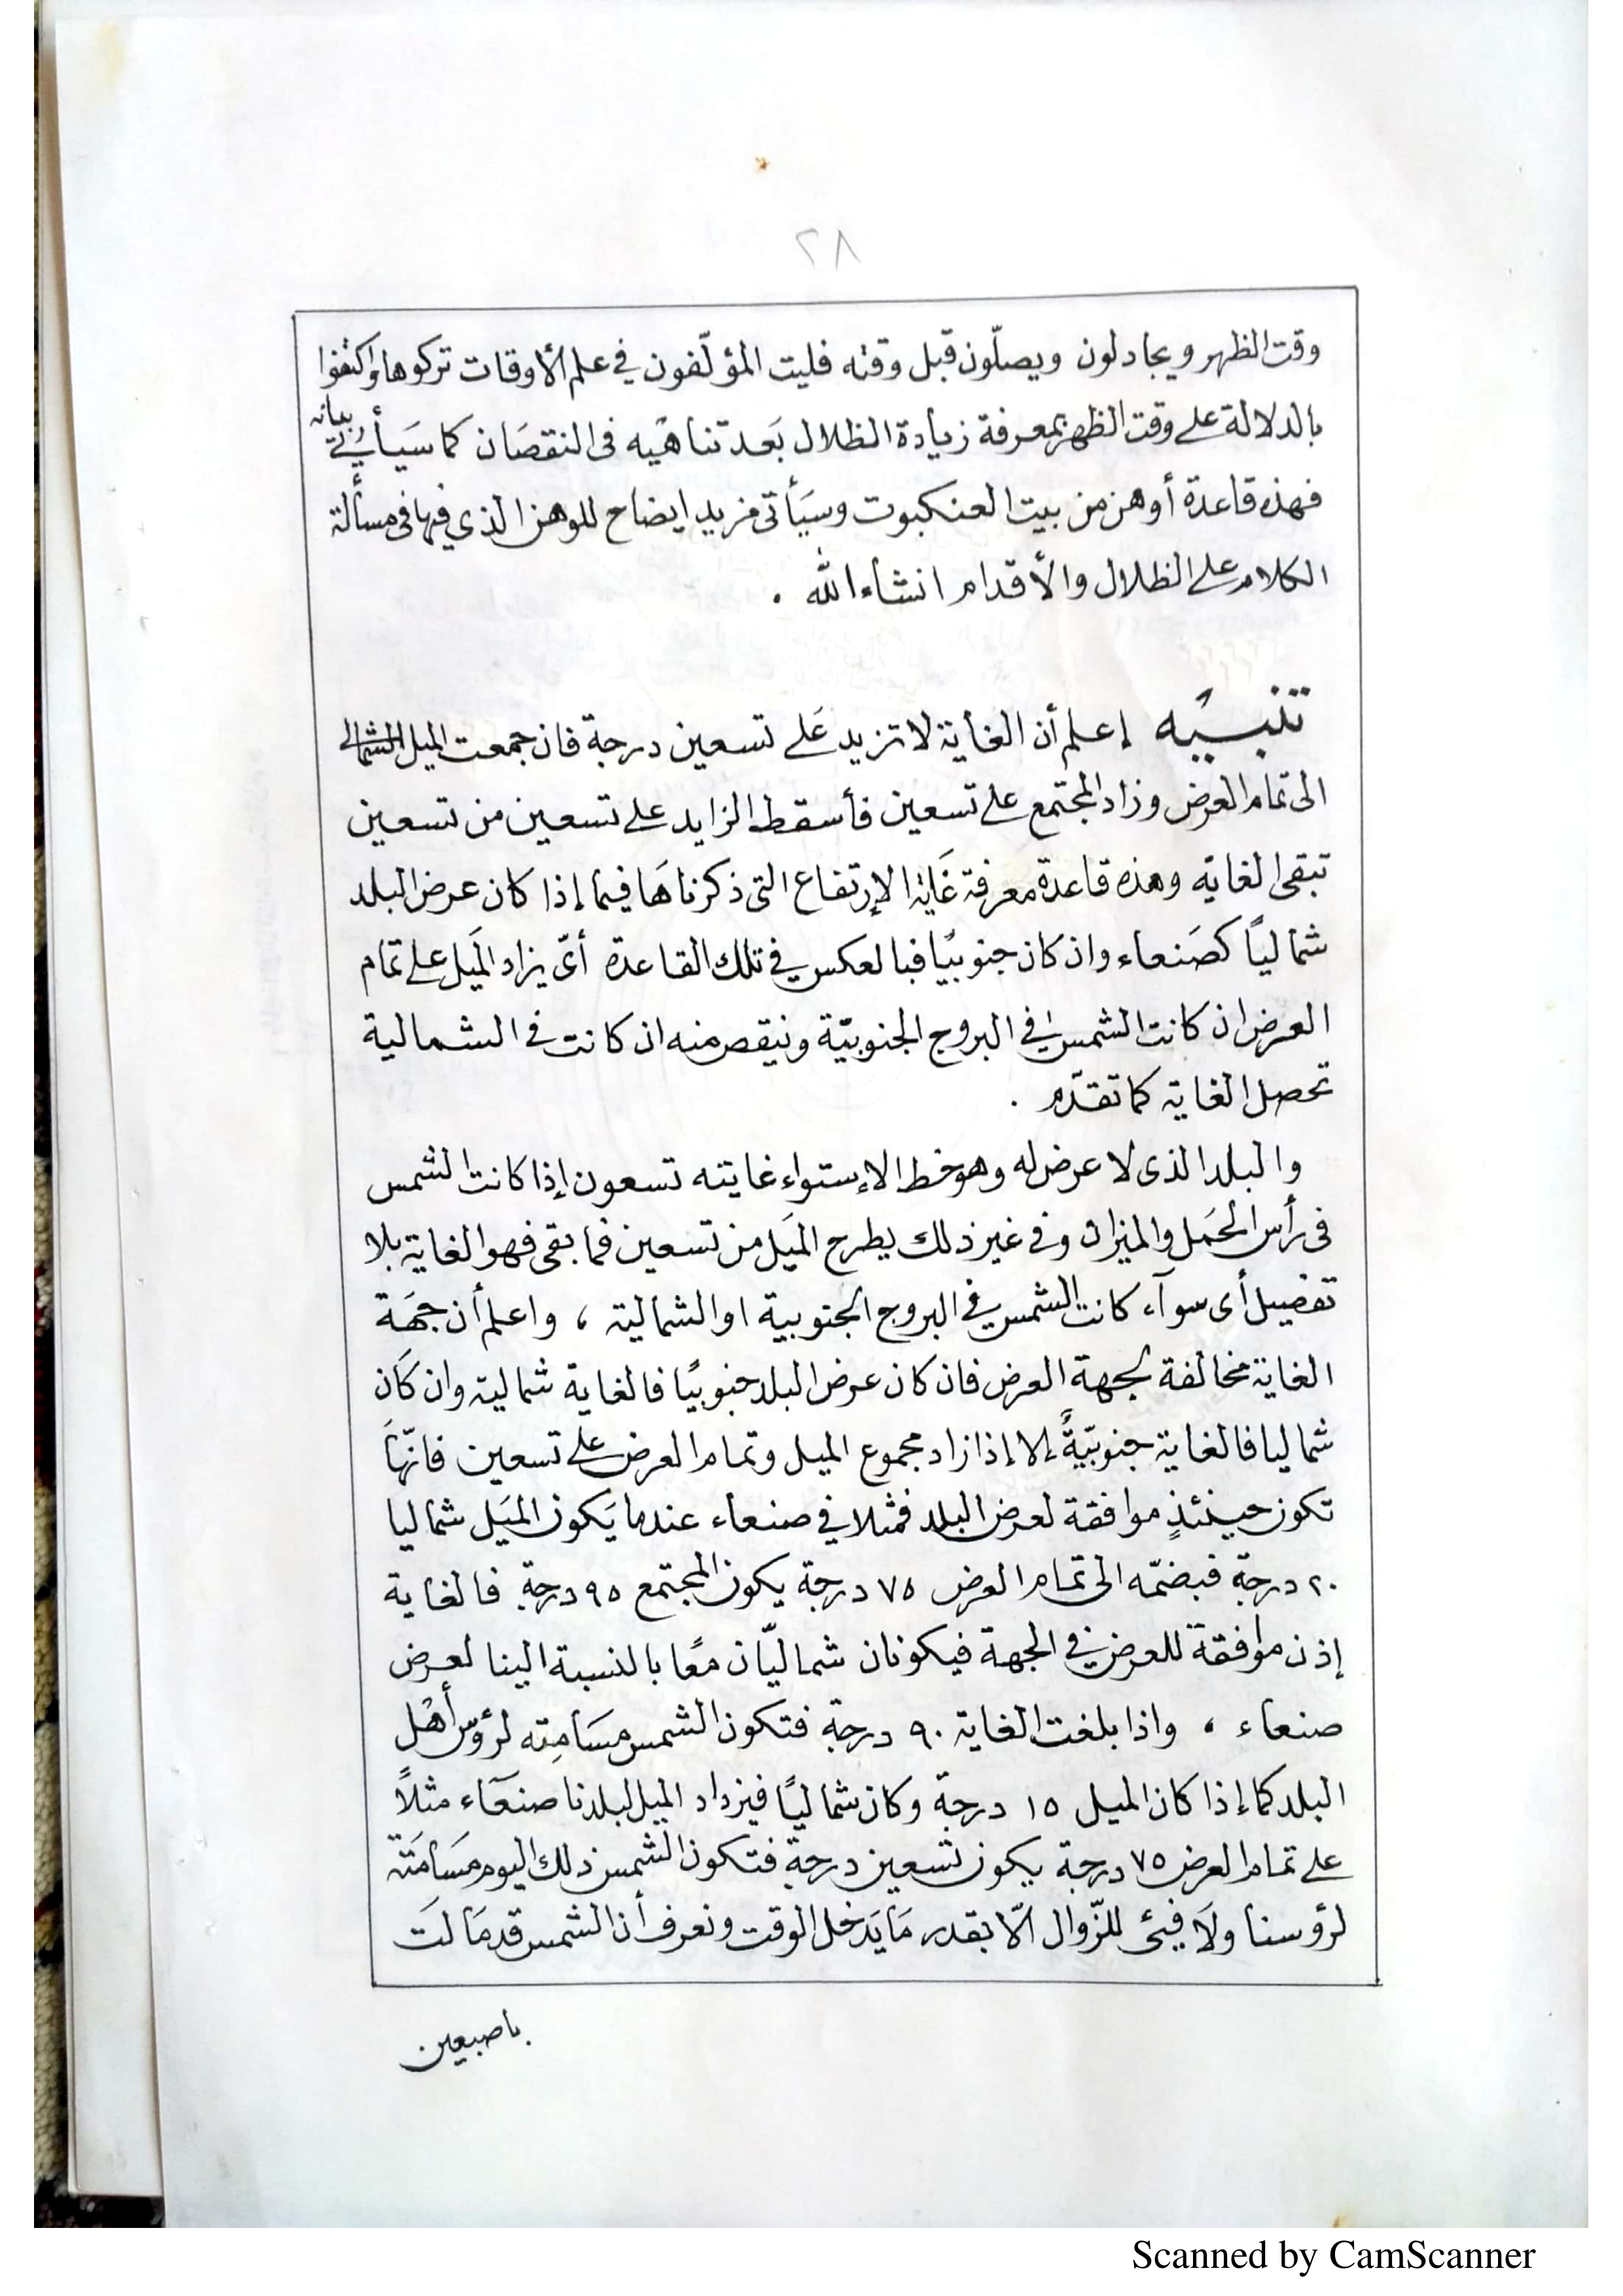 ٢٨
وقت الظهر ويجادلون ويصلّون قبل وقته فليت المؤلّفون في علم الأوقات تركوها واكتفوا
بالدلالة على وقت الظهر بمعرفة زيادة الظلال بَعد تناهيه فى النقصَان كما سَيأتي بيانه
فهذه قاعدة أوهن من بيت العنكبوت وسيَأتى مزيد ايضاح للوهن الذي فيها فى مسألة
الكلام على الظلال والأقدام انشاء الله .
تنبيه إعلم أن الغاية لا تزيد عَلى تسعين درجة فان جمعت الميل الشمالى
الى تمام العرض وزاد المجتمع على تسعين فأسقط الزايد على تسعين من تسعين
تبقى الغاية وهذه قاعدة معرفة غاية الإرتفاع التى ذكرناها فيما إذا كان عرض البلد
شمالياً كصَنعاء وان كان جنوبيًا فبالعكس في تلك القاعدة أىّ يزاد الميَل على تمام
العرض ان كانت الشمس في البروج الجنوبيّة ونيقص منه ان كانت في الشمالية
تحصل الغاية كما تقدّم .
والبلد الذى لا عرض له وهو خط الإستواء غايته تسعون إذا كانت الشمس
فى رأس الحَمل والميزان وفي غير ذلك يطرح الميَل من تسعين فما بقى فهو الغاية بلا
تفصيل أى سوآء كانت الشمس في البروج الجنوبية او الشمالية ، واعلم أن جهَة
الغاية مخالفة لجهة العرض فان كان عرض البلد جنوبيًا فالغاية شمالية وان كَان
شماليا فالغاية جنوبيّةً إلا إذا زاد مجموع الميل وتمام العرض على تسعين فانّهَا
تكون حينئذٍ موافقة لعرض البلد فمثلا في صنعاء عندما يَكون الميَل شماليا
٢٠ درجة فبضمّه الى تمام العرض ٧٥ درجة يكون المجتمع ٩٥ درجة فالغاية
إذن موافقة للعرض في الجهة فيكونان شماليّان معًا بالنسبة الينا لعرض
صنعاء ، واذا بلغت الغاية ٩٠ درجة فتكون الشمس مسَامِته لرؤس أهْل
البلد كما إذا كان الميل ١٥ درجة وكان شماليًا فيزداد الميل لبلدنا صنعَآء مثلاً
على تمام العرض ٧٥ درجة يكون تسعين درجة فتكون الشمس ذلك اليوم مسَامَتة
لرؤسنا ولَا فيئ للزّوال الّا بقدر مَا يَدخل الوقت ونعرف أن الشمس قد مَالَت
باصبعين
Scanned by CamScanner